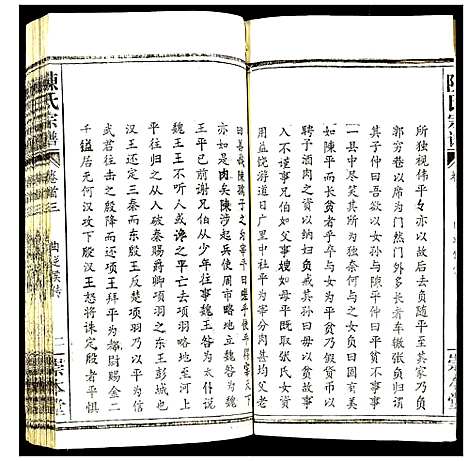 陳氏宗譜
所独视伟平平亦以故后去负随平至其家乃负
郭穷巷以席为门然门外多长者车辙张负归谓
其子仲曰吾欲以女孙与陳平仲曰平贫不事事
一县中尽笑其所为独奈何与之女负曰固有美
如陳平而长贫者乎卒与女为平贫乃假贷币以
聘予酒肉之资以纳妇负戒其孙曰毋以贫故事
人不谨事兄伯如父事嫂如母平既取张氏女资
用益饶游道日广里中社平为宰分肉甚均父老
曰善哉陳孺子之为宰平曰嗟乎使平得宰天下
亦如是肉矣陳涉起兵使周市略地立魏咎为
魏王平已前谢兄伯从少年往事魏王咎为太仆
说魏王王不听人或谗之平亡去项羽略地至河上
平往归之从入破秦赐爵卿项羽之东王彭城也
汉王还定三秦而东殷王反楚项羽乃以平为信
武君往击之殷降而还项王拜平为都尉赐金二
十镒居无何汉攻下殷汉王怒将诛定殷者平惧
陳氏宗譜
卷首三
二
崇本堂